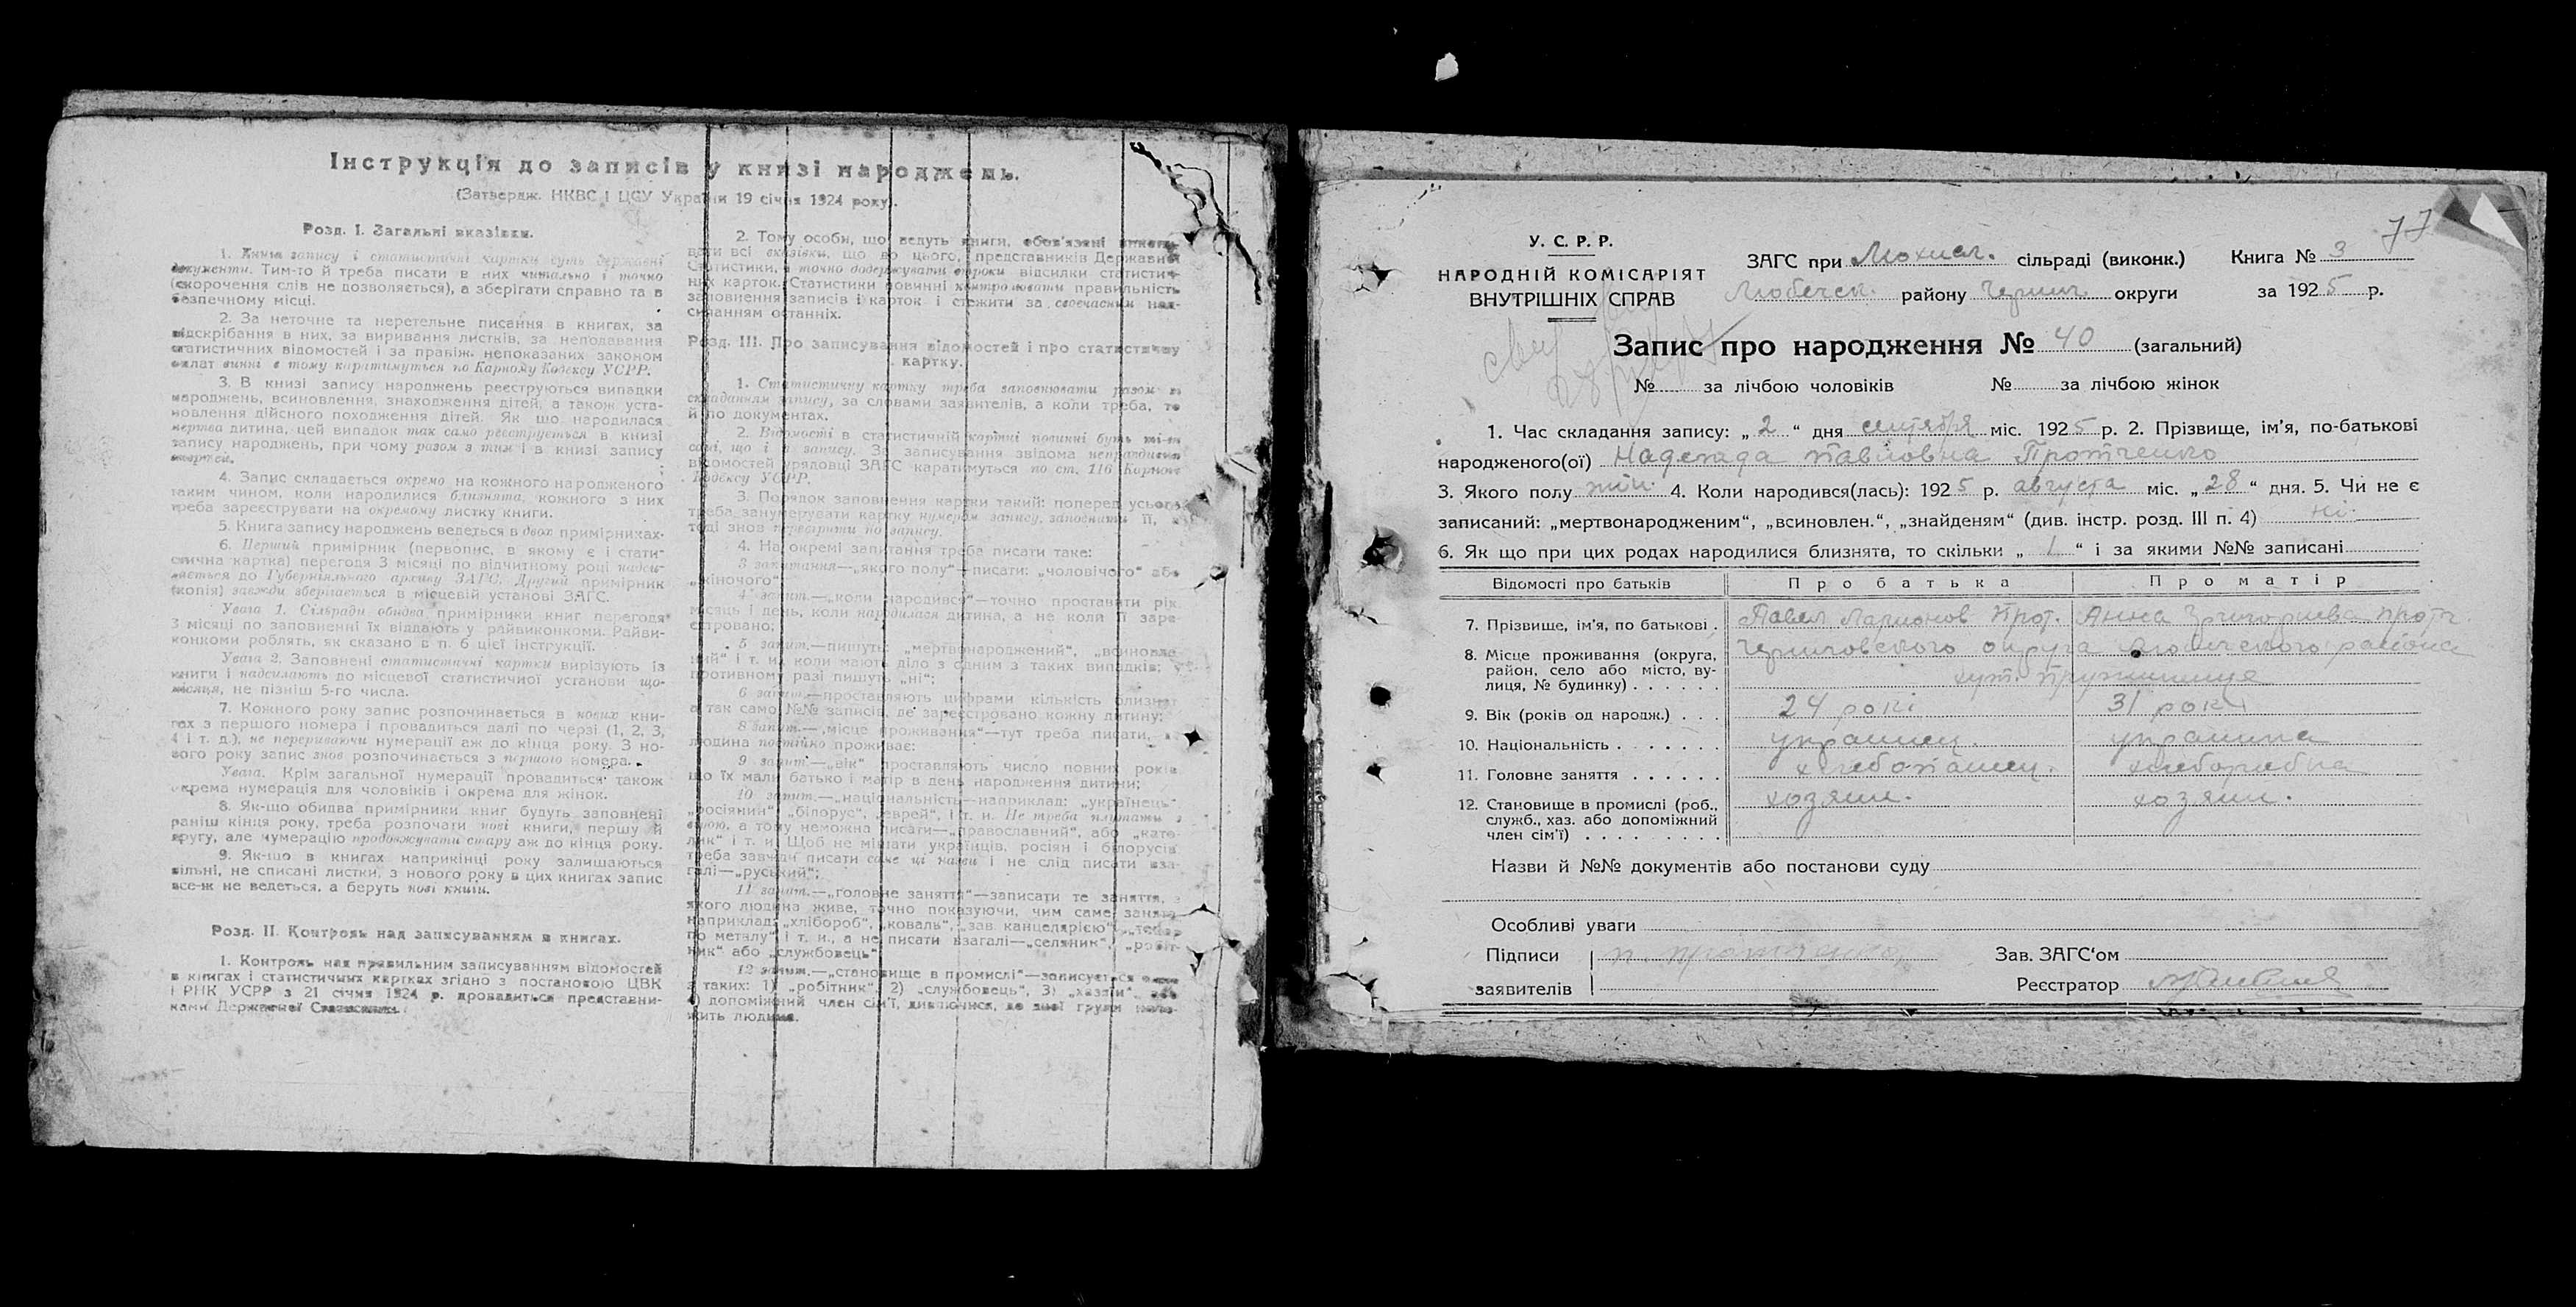 Інструкція до записів у книзі народжень.
(Затвердж. НКВС і ЦСУ України 19 січня 1924 року).
Розд. І. Загальні вказівки.
1. Книги запису і статистичні картки суть державні
документи. Тим-то й треба писати в них читально і точно
(скорочення слів не дозволяється), а зберігати справно та в
безпечному місці.
2. За неточне та неретельне писання в книгах, за
підскрібання в них, за виривання листків, за неподавання
статистичних відомостей і за правіж. непоказаних законом
оплат винні в тому каратимуться по Карному Кодексу УСРР.
3. В книзі запису народжень реєструються випадки
народжень, всиновлення, знаходження дітей, а також уста-
новлення дійсного походження дітей. Як що народилася
мертва дитина, цей випадок так само реєструється в книзі
запису народжень, при чому разом з тим і в книзі запису
смертей.
4. Запис складається окремо на кожного народженого
таким чином, коли народилися близнята, кожного з них
треба зареєструвати на окремому листку книги.
5. Книга запису народжень ведеться в двох примірниках.
6. Перший примірник (первопис, в якому є і стати-
стична картка) перегодя 3 місяці по відчитному році надси-
лається до Губерніяльного архиву ЗАГС. Другий примірник
(копія) завжди зберігається в місцевій установі ЗАГС.
Увага 1. Сільради обидва примірники книг перегодя
3 місяці по заповненні їх віддають у райвиконкоми. Райви-
конкоми роблять, як сказано в п. 6 цієї інструкції.
Увага 2. Заповнені статистичні картки вирізують із
книги і надсилають до місцевої статистичної установи що-
місяця, не пізніш 5-го числа.
7. Кожного року запис розпочинається в нових кни-
гах з першого номера і провадиться далі по черзі (1, 2, 3,
4 і т. д.), не перериваючи нумерації аж до кінця року. З но-
вого року запис знов розпочинається з першого номера.
Увага. Крім загальної нумерації провадиться також
окрема нумерація для чоловіків і окрема для жінок.
8. Як-що обидва примірники книг будуть заповнені
раніш кінця року, треба розпочати нові книги, першу й
другу, але нумерацію продовжувати стару аж до кінця року.
9. Як-що в книгах наприкінці року залишаються
вільні, не списані листки, з нового року в цих книгах запис
все-ж не ведеться, а беруть нові книги.
Розд. ІІ. Контроль над записуванням в книгах.
1. Контроль над правильним записуванням відомостей
в книгах і статистичних картках згідно з постановою ЦВК
і РНК УСРР з 21 січня 1924 р. провадиться представни-
ками Державної Статистики.
2. Тому особи, що ведуть книги, обов'язані викону-
вати всі вказівки, що до цього, представників Державної
Статистики, а точно додержувати строки відсилки статистич-
них карток. Статистики повинні контролювати правильність
заповнення записів і карток і стежити за своєчасним над-
силанням останніх.
Розд. ІІІ. Про записування відомостей і про статистичну
картку.
1. Статистичну картку треба заповнювати разом із
складанням запису, за словами заявителів, а коли треба, то
й по документах.
2. Відомості в статистичній картці повинні буть ті-ж
самі, що і в запису. За записування звідома неправдивих
відомостей урядовці ЗАГС каратимуться по ст. 116 Карного
Кодексу УСРР.
3. Порядок заповнення картки такий: поперед усього
треба занумерувати картку нумером запису, заповнити її, а
тоді знов перевірити по запису.
4. На окремі запитання треба писати таке:
3 запитання—„якого полу“—писати: „чоловічого“ або
„жіночого“.
4 запит.—„коли народився“—точно проставити рік,
місяць і день, коли народилася дитина, а не коли її заре-
єстровано.
5 запит.—пишуть: „мертвонароджений“, „всиновле-
ний“ і т. и. коли мають діло з одним з таких випадків; у
противному разі пишуть „ні“;
6 запит.—проставляють цифрами кількість близнят
а так само №№ записів, де зареєстровано кожну дитину;
8 запит.—„місце проживання“—тут треба писати, де
людина постійно проживає:
9 запит.—„вік“ проставляють число повних років
що їх мали батько і матір в день народження дитини;
10 запит.—„національність—наприклад: „українець“,
„росіянин“, „білорус“, „еврей“, і т. и. Не треба плутати з
вірою, а тому неможна писати—„православний“, або „като-
лик“ і т. и. Щоб не мішати українців, росіян і білорусів
треба завжди писати саме ці назви і не слід писати вза-
галі—„руський“;
11 запит.—„головне заняття“—записати те заняття, з
якого людина живе, точно показуючи, чим саме занята,
наприклад: „хлібороб“, „коваль“, „зав. канцелярією“, „токар
по металу“ і т. и., а не писати взагалі—„селяник“, „робіт-
ник“ або „службовець“
12 запит.—„становище в промислі“—записується одне
з таких: 1) „робітник“, 2) „службовець“, 3) „хазяїн“, або
4) допоміжний член сім'ї, дивлючися, до якої групи нале-
жить людина.
77
У. С. Р. Р.
НАРОДНІЙ КОМІСАРІЯТ
ВНУТРІШНІХ СПРАВ
ЗАГС при Мохнач. сільраді (виконк.) Книга № 3
Любечск. району Черниг. округи за 1925 р.
Запис про народження № 40 (загальний)
№ за лічбою чоловіків № за лічбою жінок
1. Час складання запису: „2“ дня сентября міс. 1925 р. 2. Прізвище, ім'я, по-батькові
народженого(ої) Надежда Павловна Протченко
3. Якого полу жін. 4. Коли народився(лась): 1925 р. августа міс. „28“ дня. 5. Чи не є
записаний: „мертвонародженим“, „всиновлен.“, „знайденям“ (див. інстр. розд. ІІІ п. 4) ні.
6. Як що при цих родах народилися близнята, то скільки „1“ і за якими №№ записані
Відомості про батьків Про батька Про матір
7. Прізвище, ім'я, по батькові . Павел Ларионов Прот. Анна Григориева Протч.
8. Місце проживання (округа, Черниговского округа Любечского района
район, село або місто, ву-
лиця, № будинку) . . . . . . хут.
9. Вік (років од народж.) . . . 24 рокі 31 рокі
10. Національність . . . . . . . украинец. украинка
11. Головне заняття . . . . . . хлебопашец. хлеборобка
12. Становище в промислі (роб., хозяин. хозяин.
служб., хаз. або допоміжний
член сім'ї) . . . . . . . . .
Назви й №№ документів або постанови суду
Особливі уваги
Підписи п. протченко Зав. ЗАГС'ом
заявителів Реєстратор